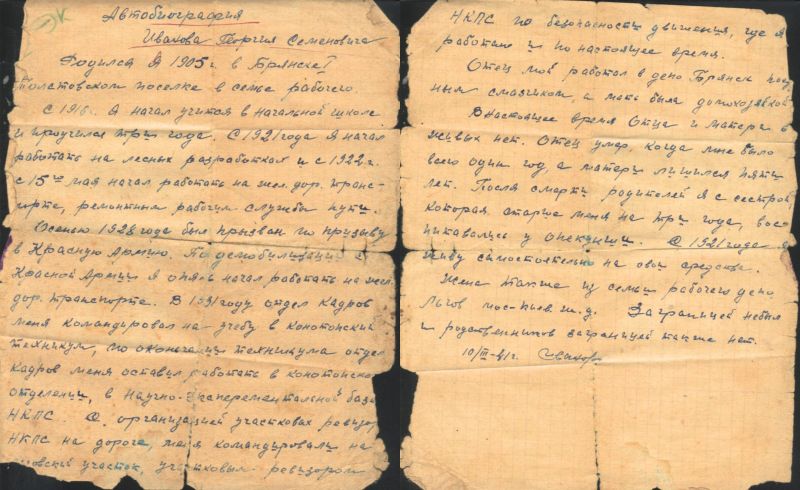 Автобиография
Ивахова Георгия Семеновича
Родился Я 1905 г. в Брянске I
Толстовском поселке в семье рабочего.
С 1916 г. Я начал учится в начальной школе
и проучился три года. С 1921 года я начал
работать на лесных разработках и с 1922 г.
с 15го мая начал работать на жел. дор. транс-
порте, ремонтным рабочим службы пути.
Осенью 1928 года был призван по призыву
в Красную Армию. По демобилизации с
Красной Армии я опять начал работать на жел.
дор. транспорте. В 1931 году отдел кадров
меня командировал на учебу в конотопский
техникум, по окончании техникума отдел
кадров меня оставил работать в конотопском
отделении, в Научно-Эксперементальной базе
НКПС. С организацией участковых ревизор
НКПС на дороге, меня командировали на
участок, участковым ревизором
НКПС по безопасности движения, где я
работаю и по настоящее время.
Отец мой работал в депо Брянск
смазчиком, а мать была домохозяйкой
В настоящее время Отца и матери в
живых нет. Отец умер, когда мне было
всего один год, а матери лишился пяти
лет. После смерти родителей я с сестрой
которая старше меня на три года, вос-
питавались у опекунши. С 1921 года я
живу самостоятельно на свои средства.
Жена также из семьи рабочего депо
Льгов мос-киев. ж. д. Заграницей небыл
и родственников заграницей также нет.
10/III-41г. Ивахов